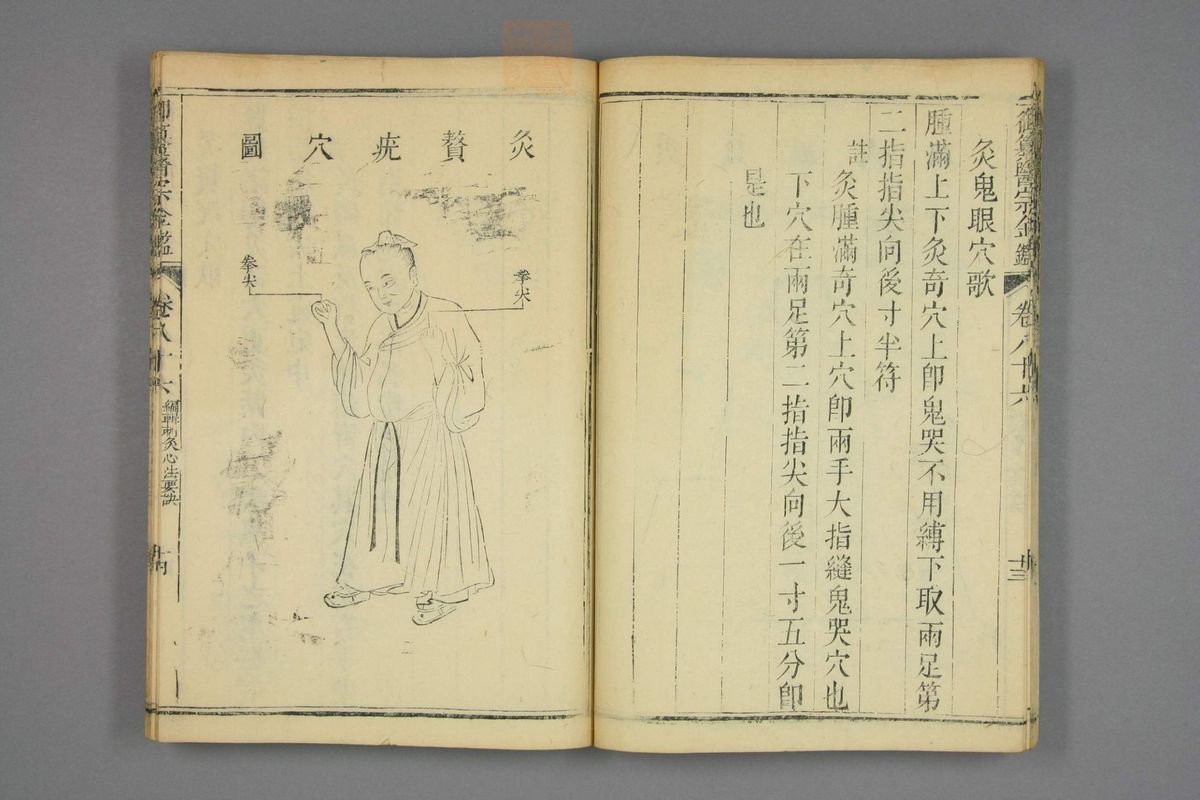 灸鬼眼穴歌
腫滿上下灸奇穴上卽鬼哭不用縛下取兩足第
二指指尖向後寸半符
註
灸腫滿奇穴上穴卽兩手大指縫鬼哭穴也
下穴在兩足第二指指尖向後一寸五分卽
是也
卷八十六
十三
灸贅疣穴圖
拳尖
拳尖
醫宗金鑑
卷八十六
編輯刺灸心法要訣
十四